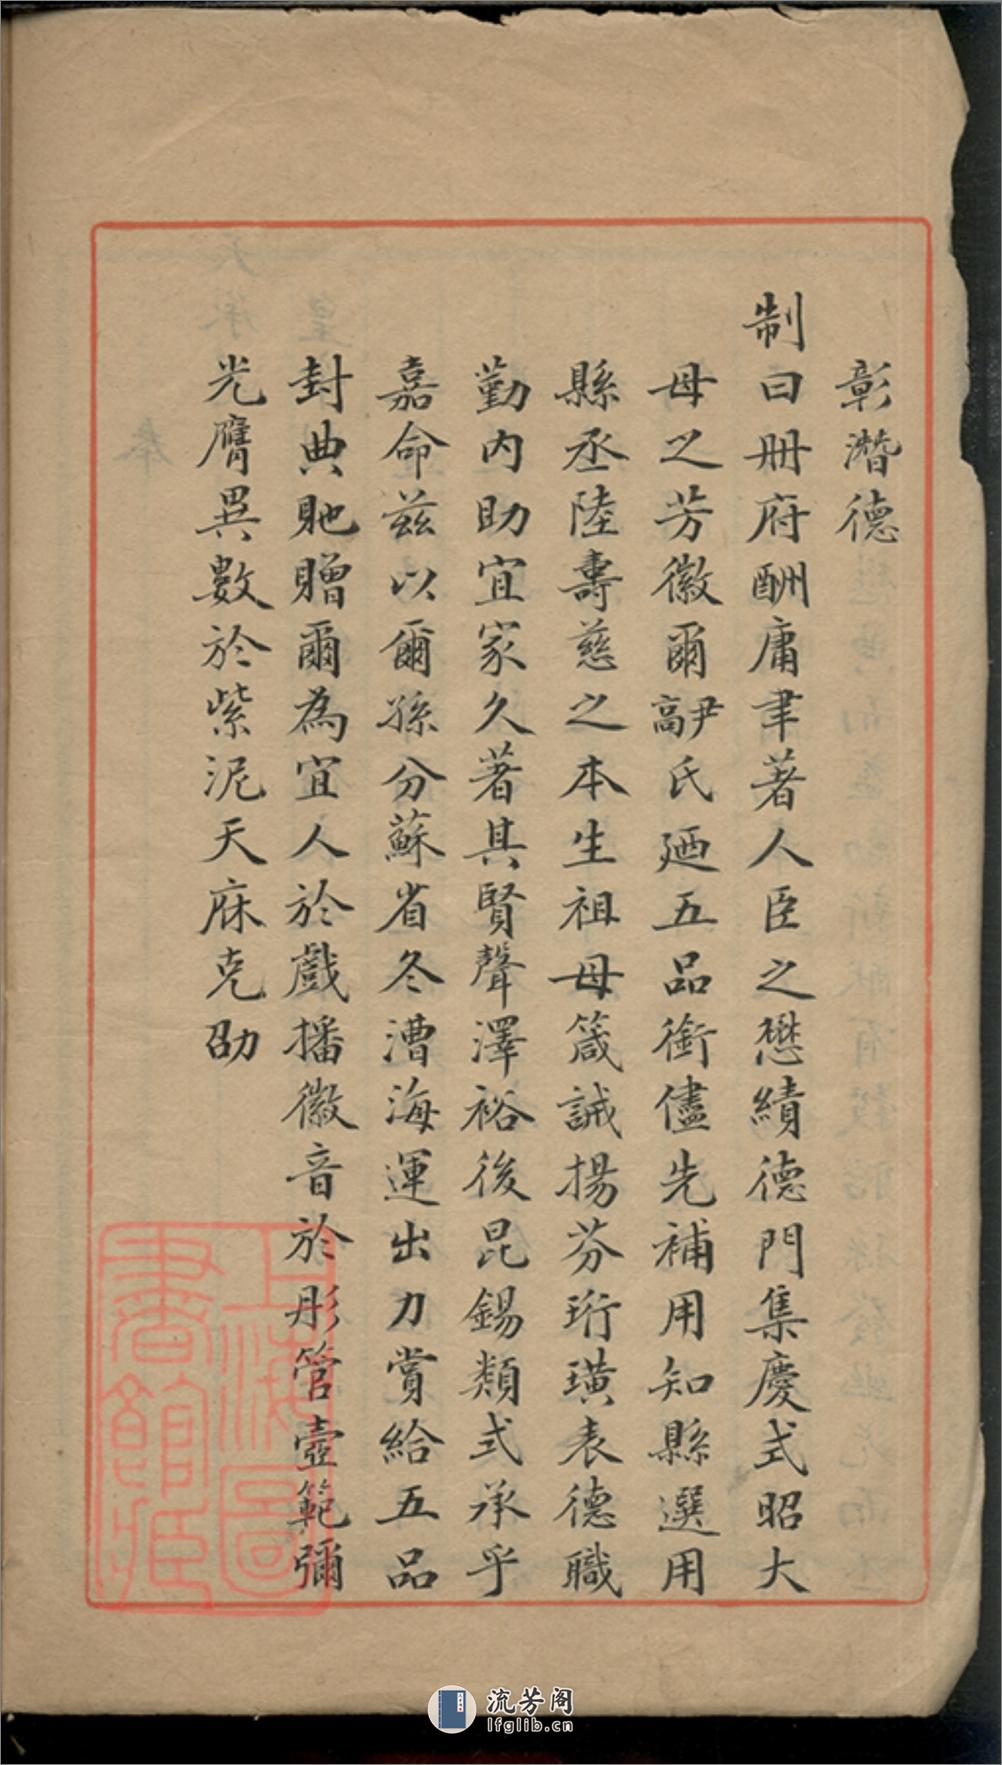 彰潛德
制曰冊府酬庸聿著人臣之懋績德門集慶式昭大
母之芳徽爾高尹氏廼五品銜儘先補用知縣選用
縣丞陸壽慈之本生祖母箴誡揚芬珩璜表德職
勤內助宜家久著其賢聲澤裕後昆錫類式承乎
嘉命茲以爾孫分蘇省冬漕海運出力賞給五品
封典貤贈爾為宜人於戲播徽音於彤管壼範彌
光膺異數於紫泥天庥克劭
上海圖書館藏
流芳阁
lfglib.cn